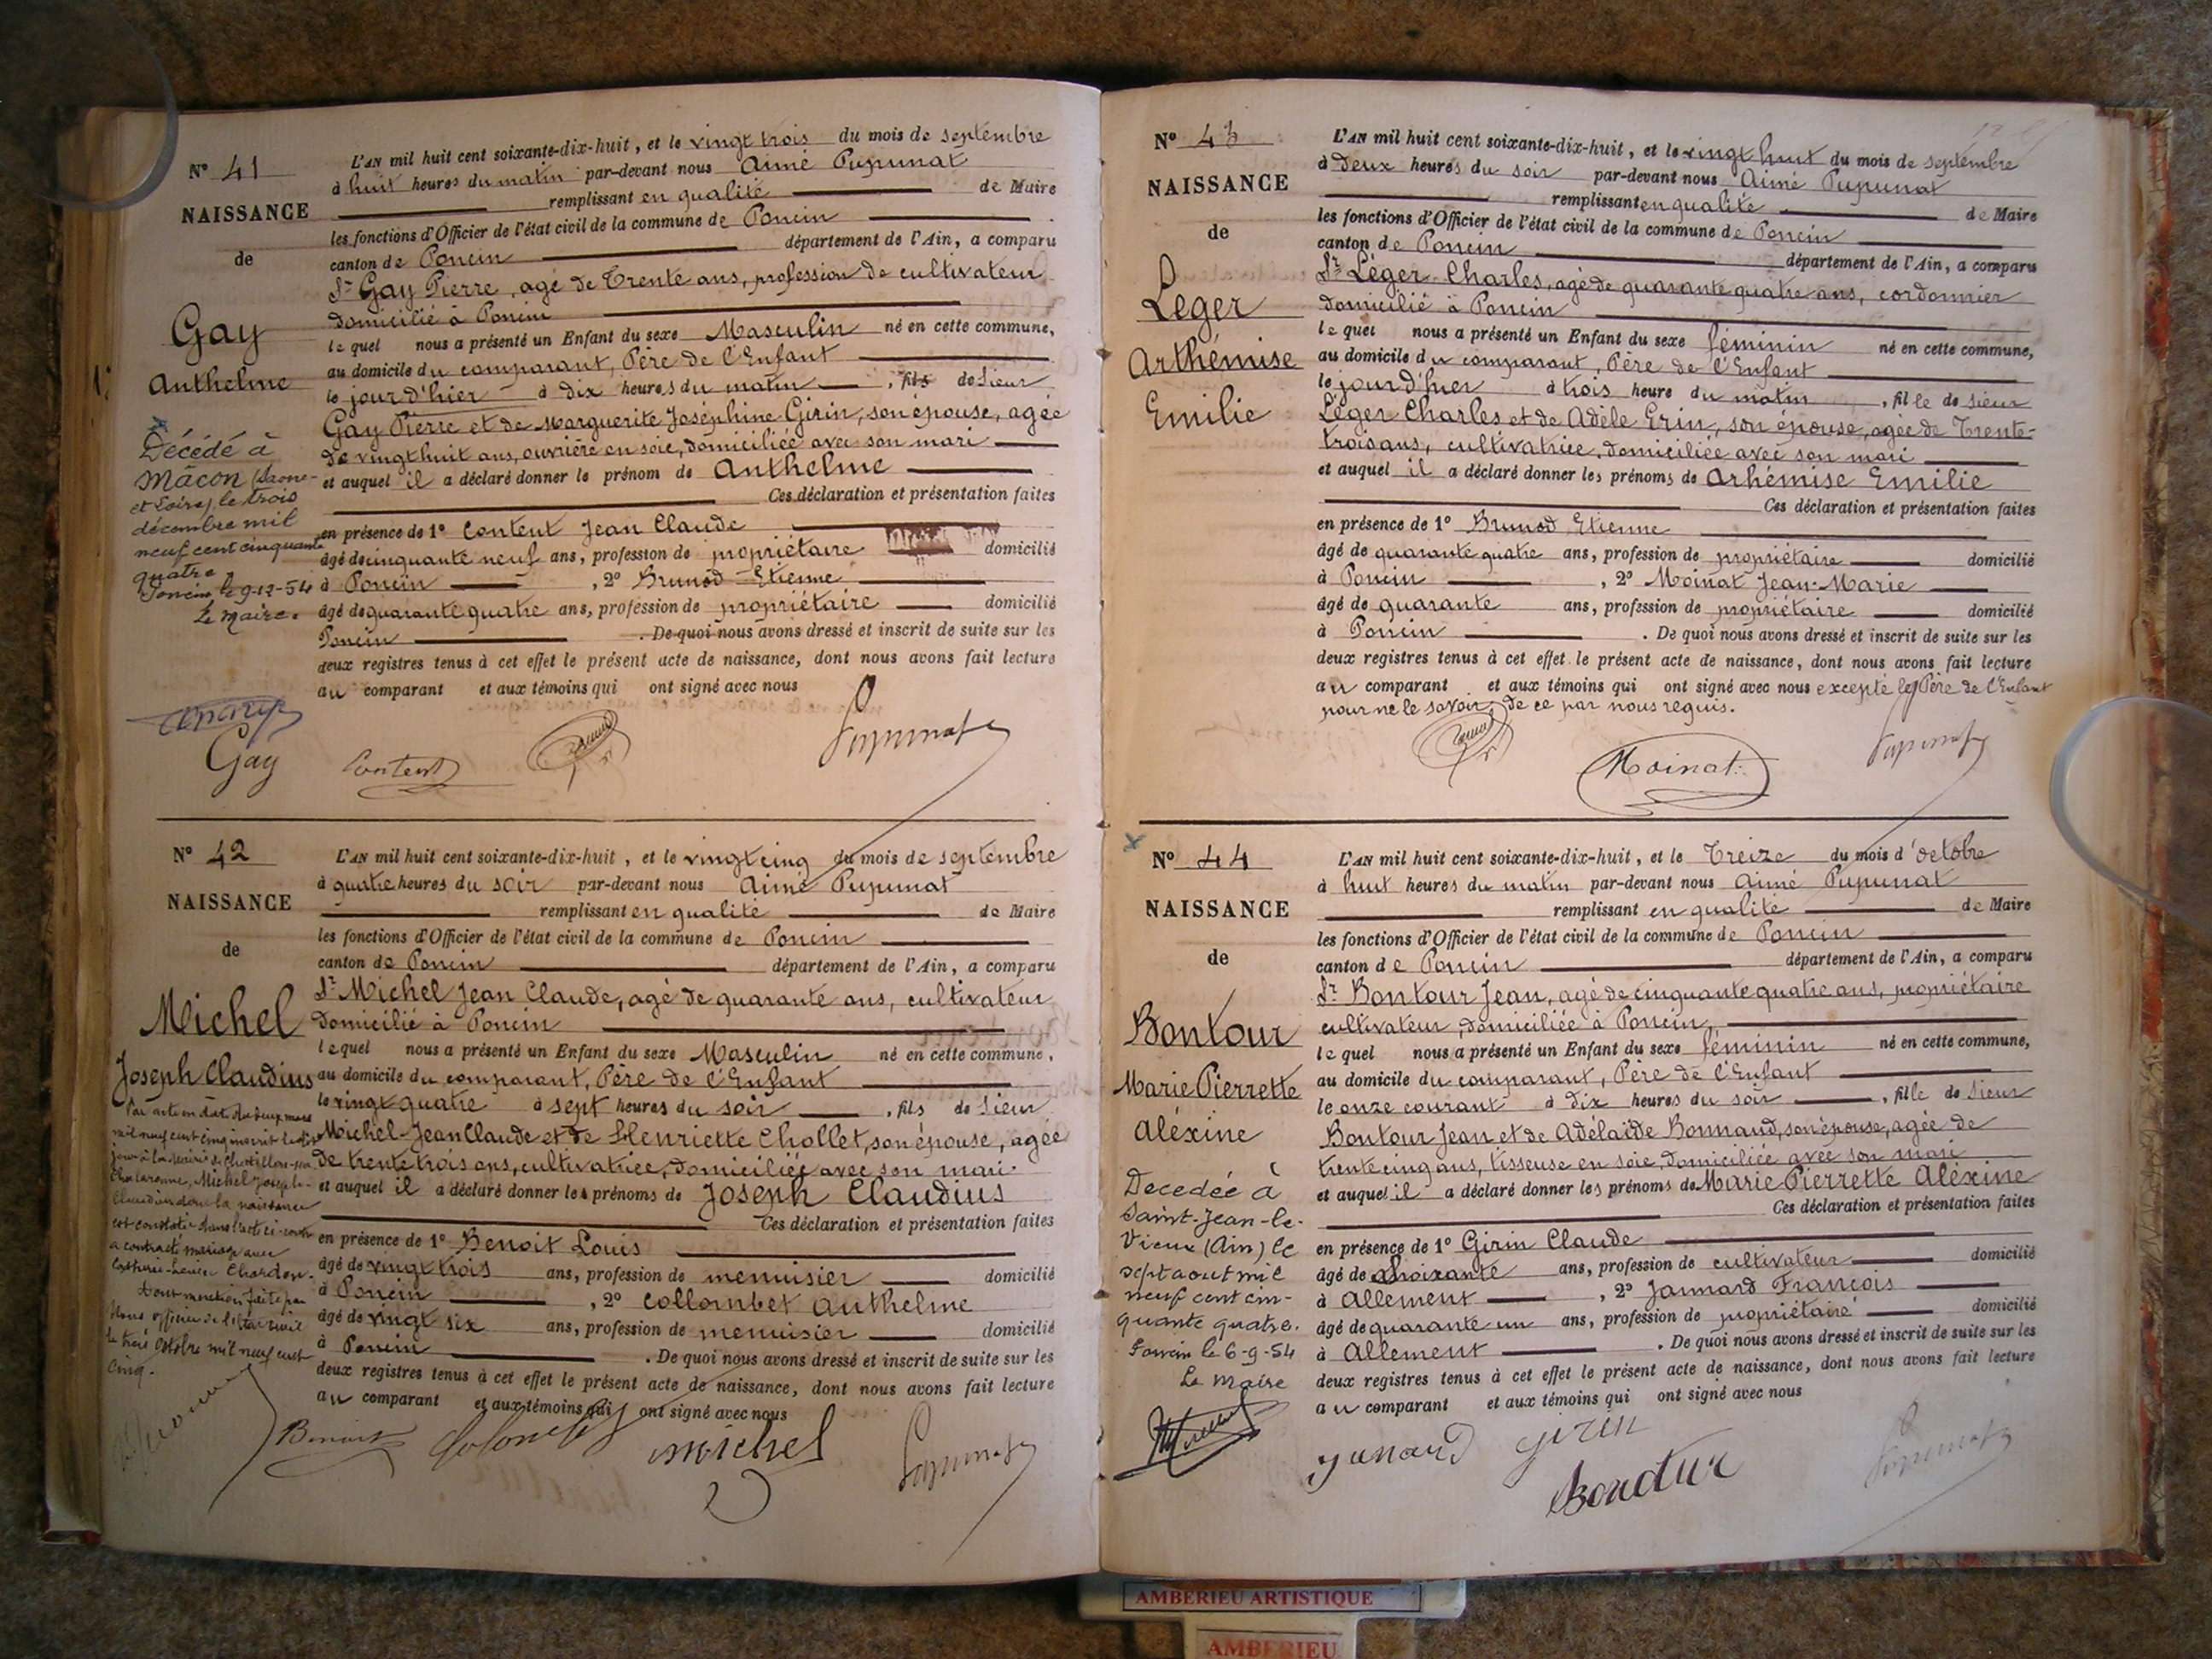 N° 41
NAISSANCE
de
Gay
Anthelme
Décédé à
Mâcon (Saone-
et Loire) le trois
décembre mil
neuf cent cinquante
quatre.
Poncin le 9-12-54
Le Maire.
L'AN mil huit cent soixante-dix-huit, et le vingt trois du mois de septembre
à huit heures du matin par-devant nous Aimé Pupunat
remplissant en qualité de Maire
les fonctions d'Officier de l'état civil de la commune de Poncin
canton de Poncin département de l'Ain, a comparu
Sr Gay Pierre, agé de Trente ans, profession de cultivateur
domicilié à Poncin
le quel nous a présenté un Enfant du sexe Masculin né en cette commune,
au domicile du comparant, Père de l'Enfant
le jour d'hier à dix heures du matin, fils de Sieur
Gay Pierre et de Marguerite Joséphine Girin, son épouse, agée
de vingt huit ans, ouvrière en soie, domiciliée avec son mari
et auquel il a déclaré donner le prénom de Anthelme
Ces déclaration et présentation faites
en présence de 1° Content Jean Claude
âgé de cinquante neuf ans, profession de propriétaire domicilié
à Poncin, 2° Brunod Etienne
âgé de quarante quatre ans, profession de propriétaire domicilié
Poncin. De quoi nous avons dressé et inscrit de suite sur les
deux registres tenus à cet effet le présent acte de naissance, dont nous avons fait lecture
au comparant et aux témoins qui ont signé avec nous
Gay Content Pupunat
N° 42
NAISSANCE
de
Michel
Joseph Claudius
Par acte en date du deux mars
mil neuf cent cinq inscrit le dit
jour à la mairie de Chatillon-sur
Chalaronne, Michel Joseph-
Claudius dont la naissance
est constatée dans l'acte ci-contre
a contracté mariage avec
Chardon.
Dont mention faite par
Nous officier de l'état civil
le trois Octobre mil neuf cent
cinq.
L'AN mil huit cent soixante-dix-huit, et le vingt cinq du mois de septembre
à quatre heures du soir par-devant nous Aimé Pupunat
remplissant en qualité de Maire
les fonctions d'Officier de l'état civil de la commune de Poncin
canton de Poncin département de l'Ain, a comparu
Sr Michel Jean Claude, agé de quarante ans, cultivateur
domicilié à Poncin
le quel nous a présenté un Enfant du sexe Masculin né en cette commune,
au domicile du comparant, Père de l'Enfant
le vingt quatre à sept heures du soir, fils de Sieur
Michel Jean Claude et de Henriette Chollet, son épouse, agée
de trente trois ans, cultivatrice, domiciliée avec son mari.
et auquel il a déclaré donner les prénoms de Joseph Claudius
Ces déclaration et présentation faites
en présence de 1° Benoit Louis
âgé de vingt trois ans, profession de menuisier domicilié
à Poncin, 2° Collombet Anthelme
âgé de vingt six ans, profession de menuisier domicilié
à Poncin. De quoi nous avons dressé et inscrit de suite sur les
deux registres tenus à cet effet le présent acte de naissance, dont nous avons fait lecture
au comparant et aux témoins qui ont signé avec nous
Benoit michel Pupunat
N° 43
NAISSANCE
de
Léger
Arthémise
Emilie
L'AN mil huit cent soixante-dix-huit, et le vingt huit du mois de septembre
à deux heures du soir par-devant nous Aimé Pupunat
remplissant en qualité de Maire
les fonctions d'Officier de l'état civil de la commune de Poncin
canton de Poncin département de l'Ain, a comparu
Sr Léger Charles, agé de quarante quatre ans, cordonnier
domicilié à Poncin
le quel nous a présenté un Enfant du sexe féminin né en cette commune,
au domicile du comparant, Père de l'Enfant
le jour d'hier à trois heure du matin, fille de Sieur
Léger Charles et de Adèle Erin, son épouse, agée de Trente-
trois ans, cultivatrice, domiciliée avec son mari
et auquel il a déclaré donner les prénoms de Arhémise Emilie
Ces déclaration et présentation faites
en présence de 1° Brunod Etienne
âgé de quarante quatre ans, profession de propriétaire domicilié
à Poncin, 2° Moinat Jean-Marie
âgé de quarante ans, profession de propriétaire domicilié
à Poncin. De quoi nous avons dressé et inscrit de suite sur les
deux registres tenus à cet effet le présent acte de naissance, dont nous avons fait lecture
au comparant et aux témoins qui ont signé avec nous excepté le Père de l'Enfant
pour ne le savoir, de ce par nous requis.
Moinat Pupunat
N° 44
NAISSANCE
de
Bontour
Marie Pierrette
Aléxine
Decedée à
Saint-Jean-le-
Vieux (Ain) le
sept aout mil
neuf cent cin-
quante quatre.
Poncin le 6-9-54
Le Maire
L'AN mil huit cent soixante-dix-huit, et le Treize du mois d'octobre
à huit heures du matin par-devant nous Aimé Pupunat
remplissant en qualité de Maire
les fonctions d'Officier de l'état civil de la commune de Poncin
canton de Poncin département de l'Ain, a comparu
Sr Bontour Jean, agé de cinquante quatre ans, propriétaire
cultivateur, domiciliée à Poncin
le quel nous a présenté un Enfant du sexe féminin né en cette commune,
au domicile du comparant, Père de l'Enfant
le onze courant à dix heures du soir, fille de Sieur
Bontour Jean et de Adélaïde Bonnaud, son épouse, agée de
trente cinq ans, tisseuse en soie, domiciliée avec son mari
et auquel il a déclaré donner les prénoms de Marie Pierrette Aléxine
Ces déclaration et présentation faites
en présence de 1° Girin Claude
âgé de soixante ans, profession de cultivateur domicilié
à Allement, 2° Jannard François
âgé de quarante un ans, profession de propriétaire domicilié
à Allement. De quoi nous avons dressé et inscrit de suite sur les
deux registres tenus à cet effet le présent acte de naissance, dont nous avons fait lecture
au comparant et aux témoins qui ont signé avec nous
janard girin Pupunat
Bondur
AMBERIEU ARTISTIQUE
AMBERIEU